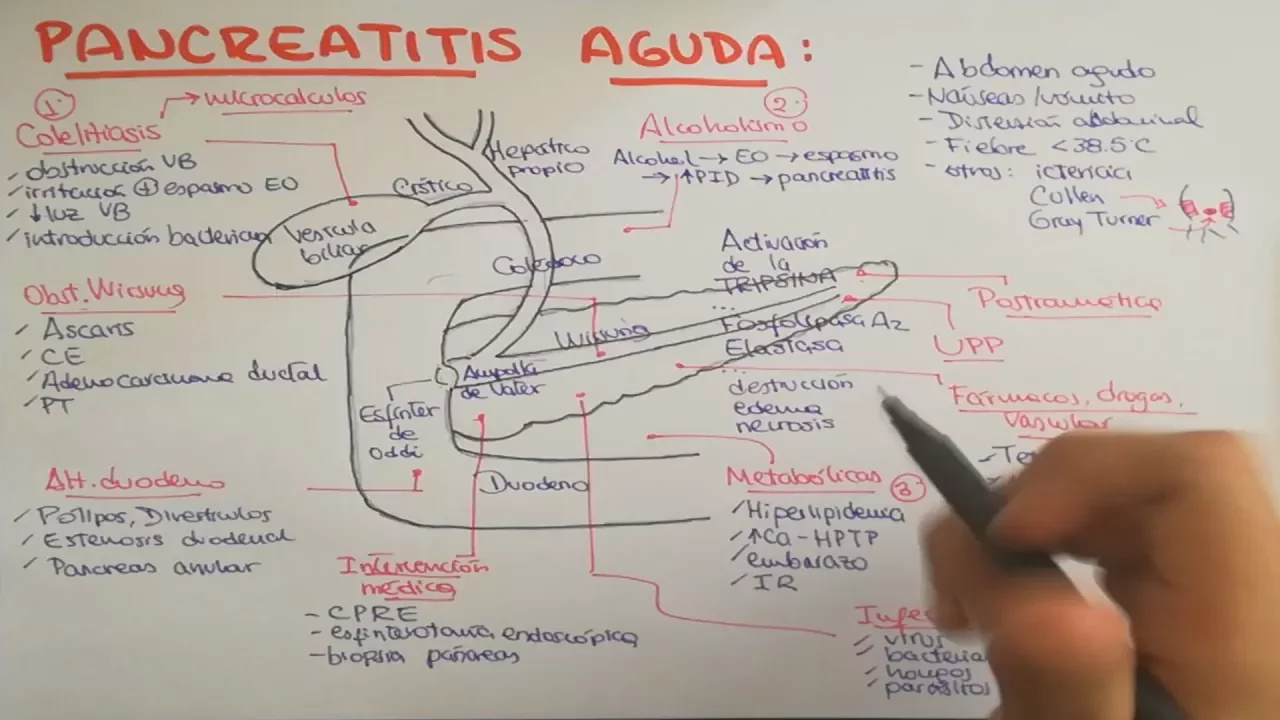 PANCREATITIS AGUDA:
1.
→ microcalculos
Colelitiasis
✓ obstrucción VB
✓ irritación ⊕ espasmo EO
✓ ↓ luz VB
✓ introducción bacteriana
Obst. Wirsung
✓ Ascaris
✓ CE
✓ Adenocarcinoma ductal
✓ PT
Alt. duodeno
✓ Pólipos, Diverstículos
✓ Estenosis duodenal
✓ Pancreas anular
Hepático
propio
Cístico
Vesícula
biliar
Colédoco
Wirsung
Ampolla
de Vater
Esfínter
de
Oddi
Duodeno
Intervención
médica
- CPRE
- esfinterotomía endoscópica
- biopsia páncreas
2.
Alcoholismo
Alcohol → EO → espasmo
→ ↑PID → pancreatitis
Activación
de la
TRIPSINA
...
Fosfolipasa A2
Elastasa
...
destrucción
edema
necrosis
Metabólicas 3.
✓ Hiperlipidemia
✓ ↑Ca - HPTP
✓ embarazo
✓ IR
- Abdomen agudo
- Náuseas/vómito
- Distensión abdominal
- Fiebre < 38.5°C
- otros: ictericia
Cullen
Gray Turner
Postraumática
UPP
Fármacos, drogas,
vascular
✓ virus
✓ bacteria
✓ hongos
✓ parásitos